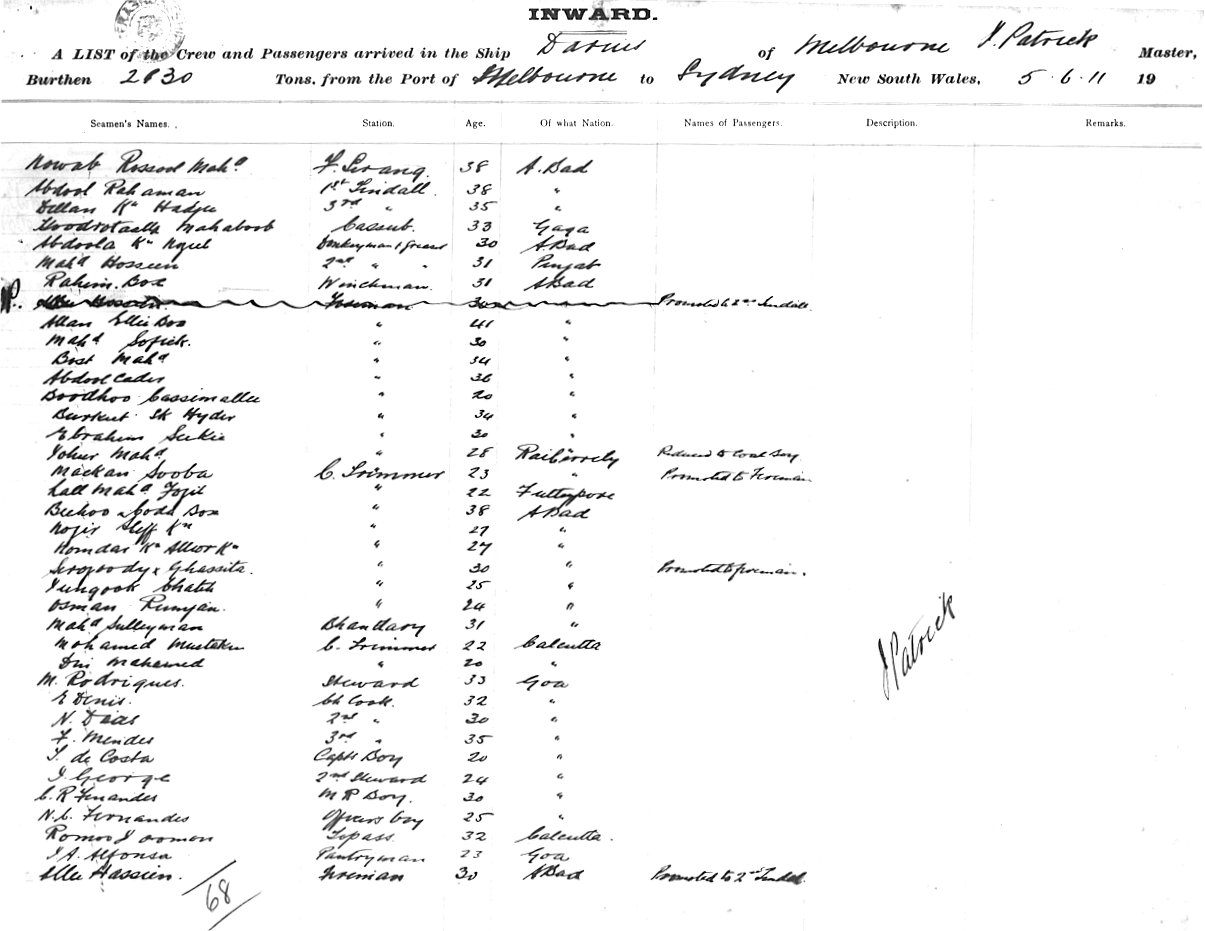 INWARD.
A LIST of the Crew and Passengers arrived in the Ship Darius of Melbourne J. Patrick Master,
Burthen 2830 Tons, from the Port of Melbourne to Sydney New South Wales, 5·6·11 19
Seamen's Names. Station. Age. Of what Nation. Names of Passengers. Description. Remarks.
Nowab Rossool Mahd F. Serang 38 A. Bad
Abdool Rahaman 1st Tindall 38 "
Dillan Kn Hadjee 3rd " 35 "
Mahaboob Cassub. 33 Gaya
Abdoola Kn 30 A. Bad
Mahd Hossein 2nd " " 31 Punjab
Rahim Box Winchman 31 A Bad
Fireman 30 Promoted to 2nd Tindall
Allan Ellie Box " 41 "
Mahd Sofick. " 30 "
Bost Mahd " 34 "
Abdool Cader " 36 "
Boodhoo Cassimallee " 20 "
Burkut Sk Hyder " 34 "
Ebrahim " 30 "
Mahd " 28 Reduced to Coal Boy
Mackan Sooba C. Trimmer 23 " Promoted to Fireman
Lall Mahd " 22 Futtypore
Box " 38 A Bad
Kn " 27 "
Kn Kn " 27 "
Ghassita. " 30 " Promoted to fireman.
" 25 "
Osman " 24 "
Mahd Sulleyman Bhandary 31 "
Mohamed C. Trimmer 22 Calcutta
Din Mahamed " 20 "
M. Rodriques. Steward 33 Goa
E Denis. Ch Cook. 32 "
N. Daas 2nd " 30 "
F. Mendes 3rd " 35 "
S. de Costa Capts Boy 20 "
J. George 2nd Steward 24 "
C. R Fernandes M R Boy. 30 "
N. C. Fernandes Officers boy 25 "
Topass. 32 Calcutta.
J. A. Alfonso Pantryman 23 Goa
Allee Hassien. Fireman 30 A Bad Promoted to 2nd Tindal.
68
J Patrick